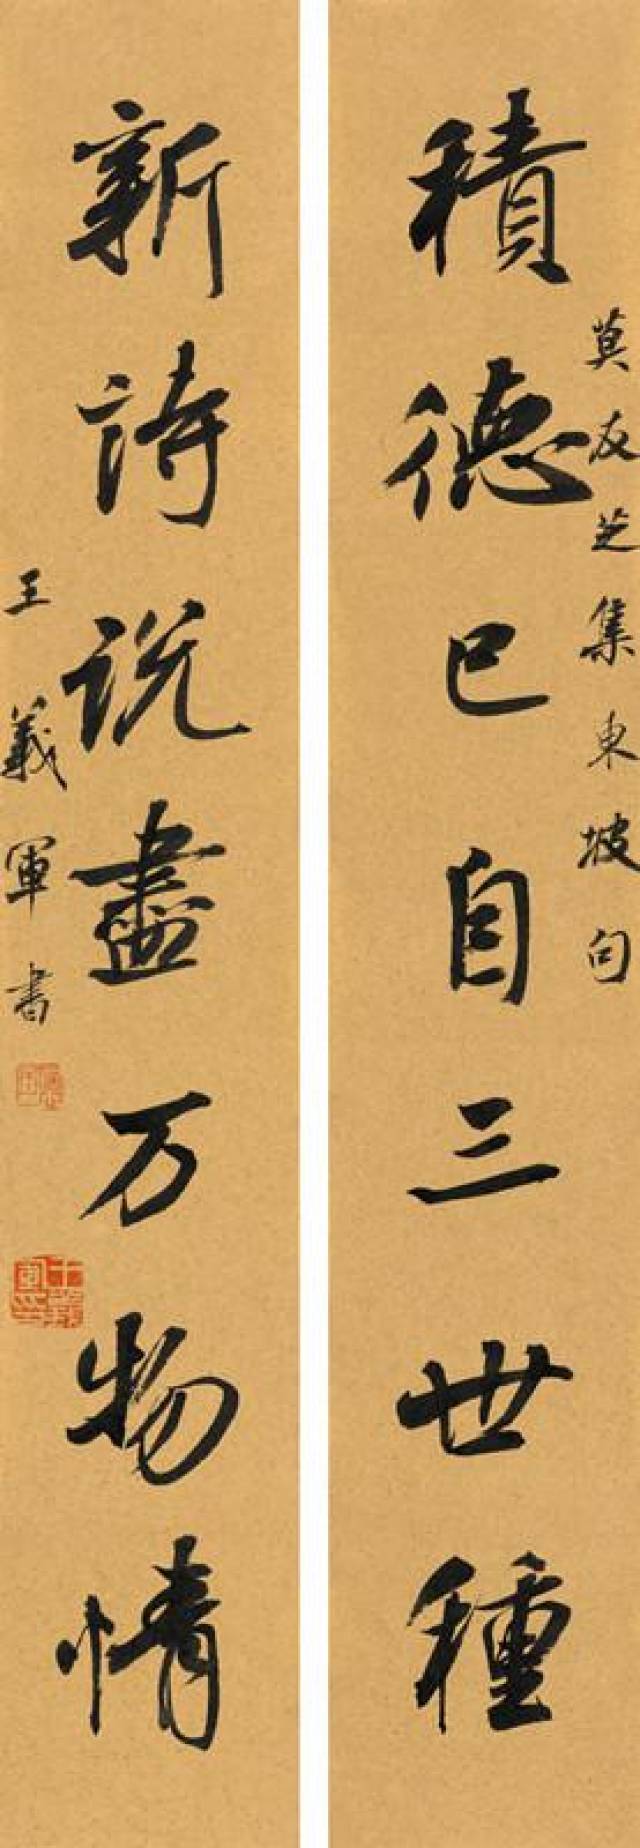 積德已自三世種
莫友芝集東坡句
新詩説盡万物情
王義軍書